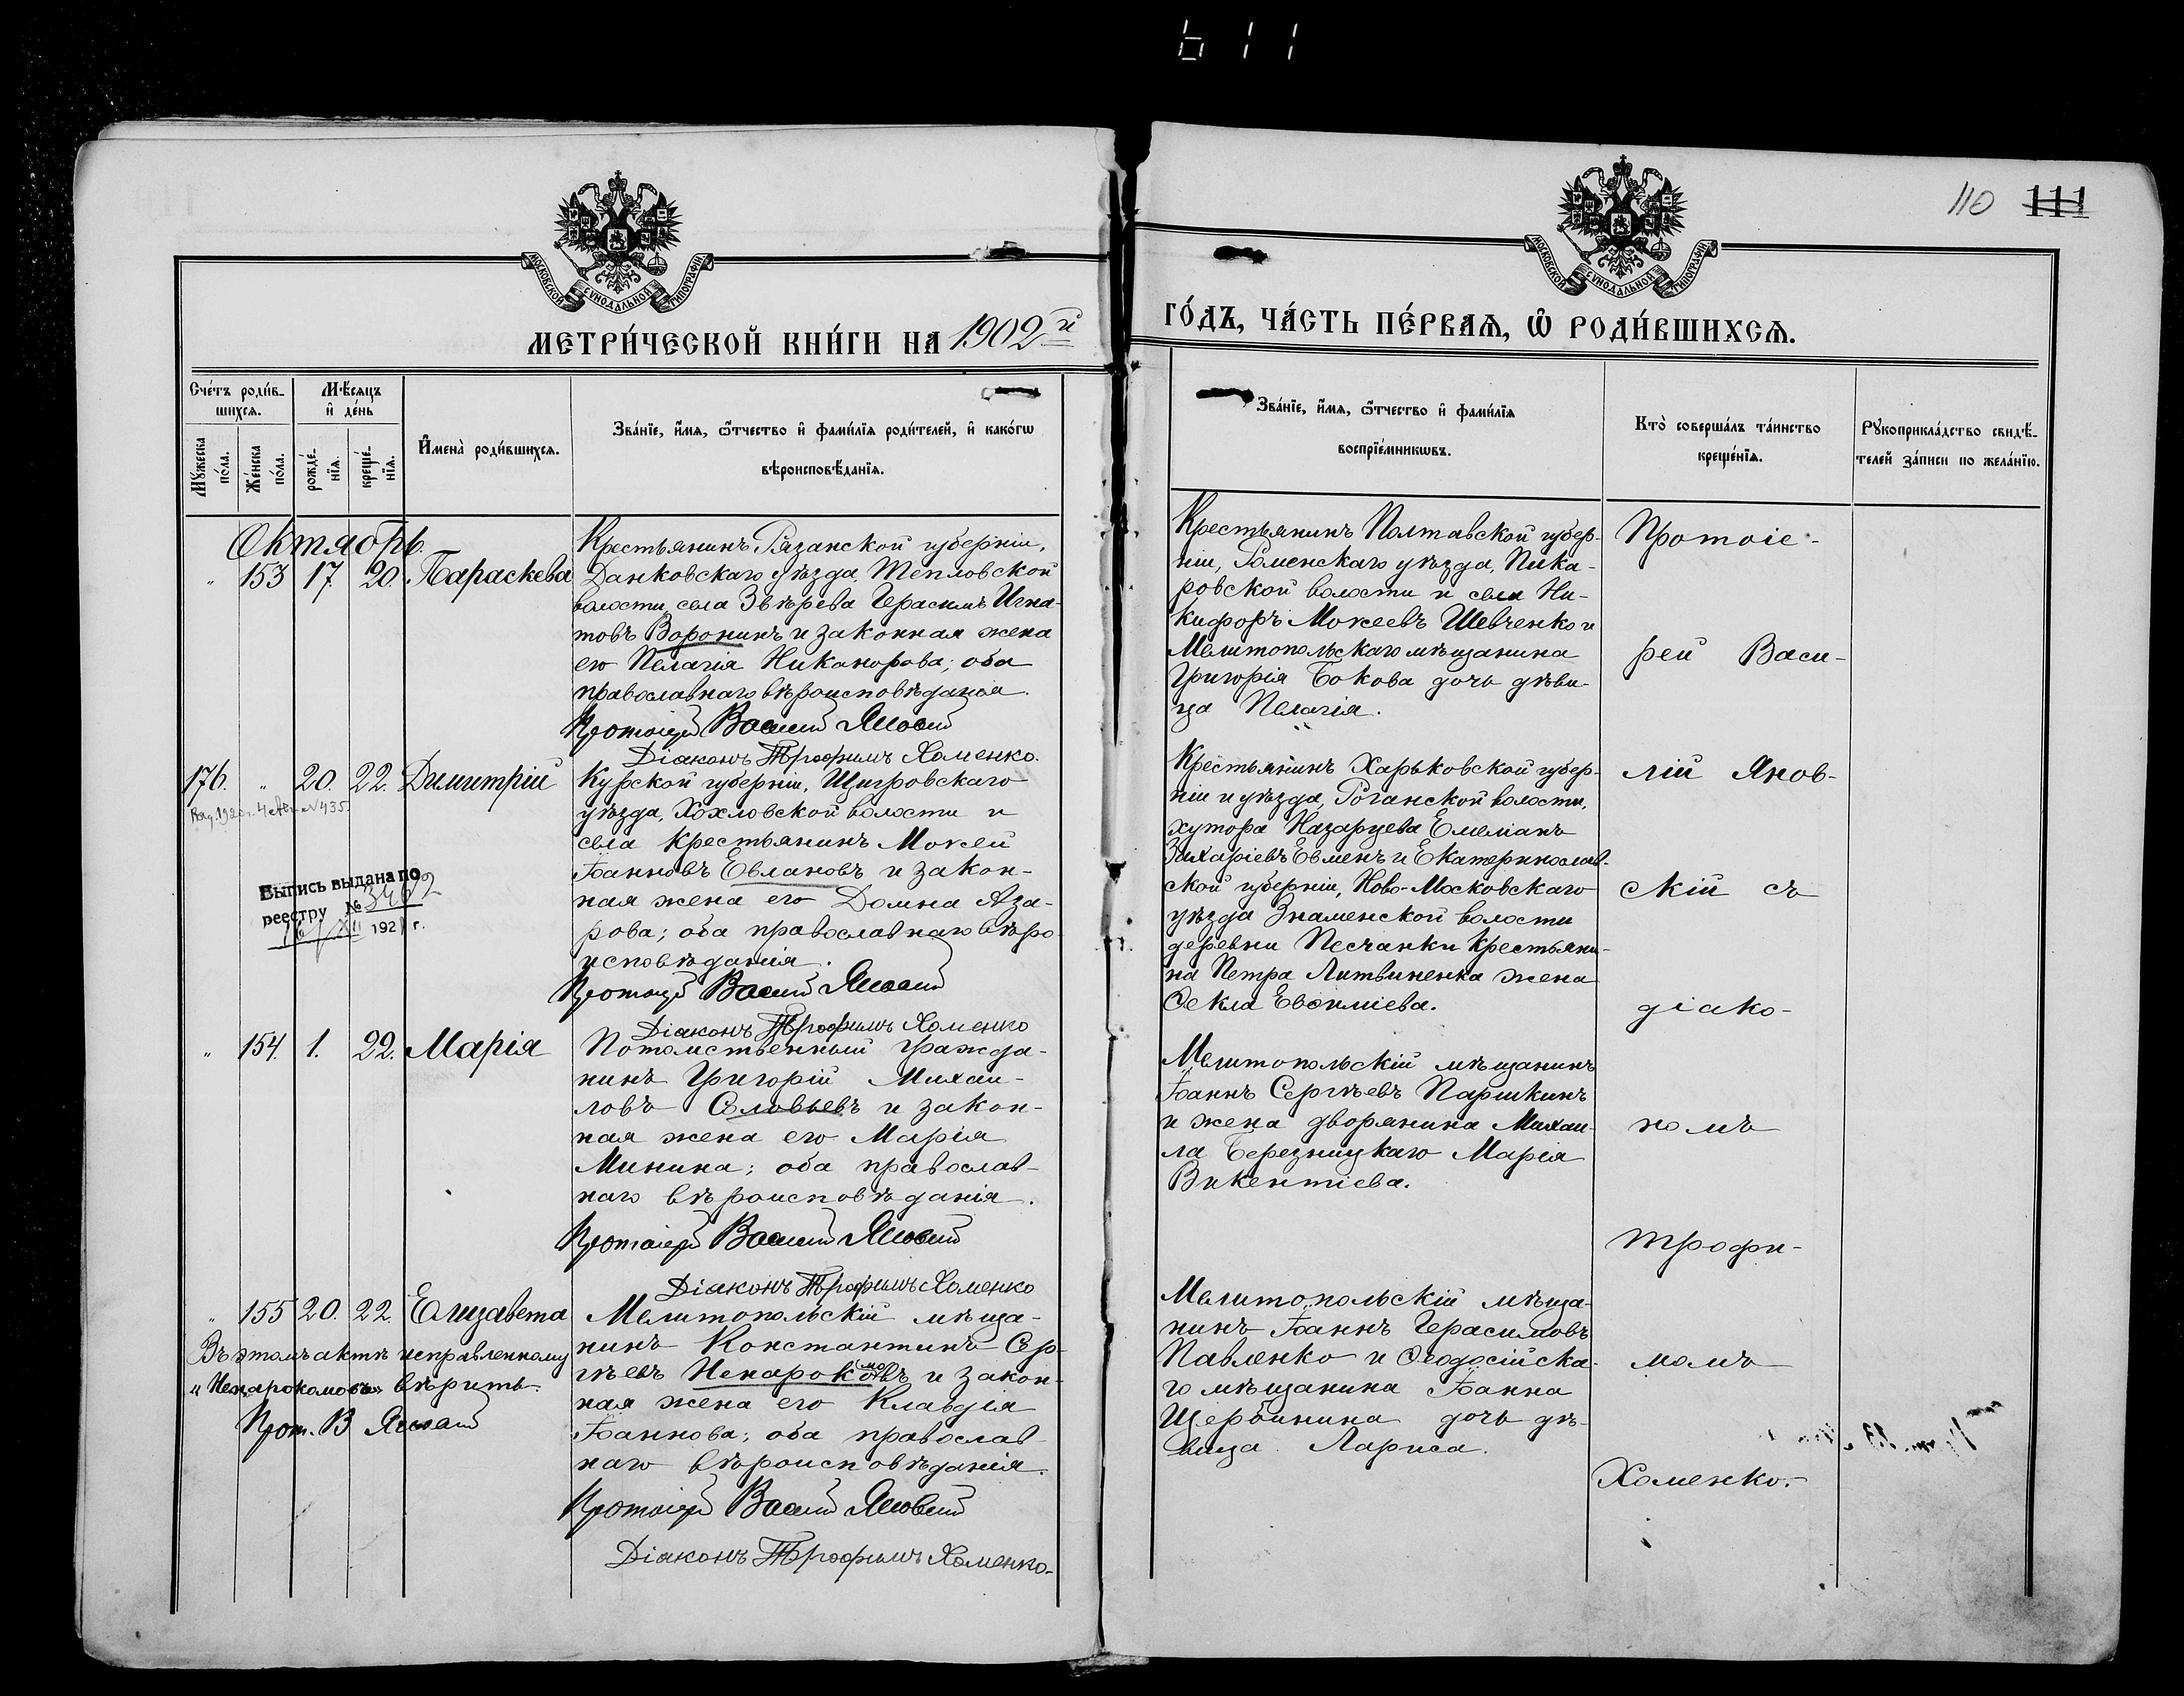 611
110 111
МОСКОВСКОЙ СѴНОДАЛЬНОЙ ТИПОГРАФІИ
МОСКОВСКОЙ СѴНОДАЛЬНОЙ ТИПОГРАФІИ
МЕТРИ́ЧЕСКОЙ КНИ́ГИ НА 1902й
ГО́ДЪ, ЧА́СТЬ ПЕ́РВАѦ, Ѡ҆ РОДИ́ВШИХСѦ.
Сче́тъ роди́в-
шихсѧ.
Мꙋжеска по́ла.
Же́нска по́ла.
Мѣ́сѧцъ
и҆ де́нь
рожде́-
нїѧ.
креще́-
нїѧ.
И҆мена̀ роди́вшихсѧ.
Зва́нїе, и҆́мѧ, ѻ҆́тчество и҆ фами́лїѧ роди́телей, и҆ како́гѡ
вѣроисповѣ́данїѧ.
Зва́нїе, и҆́мѧ, ѻ҆́тчество и҆ фами́лїѧ
воспрїе́мникѡвъ.
Кто̀ соверша́лъ та́инство
креще́нїѧ.
Рꙋкоприкла́дство свидѣ́-
телей за́писи по жела́нїю.
Октябрь.
" 153 17. 20. Параскева
Крестьянинъ Рязанской губерніи,
Данковскаго уѣзда, Тепловской
волости, села Звѣрева Герасимъ Игна-
товъ Воронинъ и законная жена
его Пелагія Никанорова; оба
православнаго вѣроисповѣданія.
Протоіерей Василій Яновскій
Діаконъ Трофимъ Хоменко.
Крестьянинъ Полтавской губер-
ніи, Роменскаго уѣзда, Пика-
ровской волости и села Ни-
кифоръ Мокеевъ Шевченко и
Мелитопольскаго мѣщанина
Григорія Бокова дочь дѣви-
ца Пелагія.
Протоіе-
рей Васи-
лій Янов-
скій съ
діако-
номъ
Трофи-
момъ
Хоменко.
176. " 20. 22. Димитрій
№ 435.
Выпись выдана по
реестру №
192 г.
Курской губерніи, Щигровскаго
уѣзда, Хохловской волости и
села крестьянинъ Мокей
Іоанновъ Евлановъ и закон-
ная жена его Домна Аза-
рова; оба православнаго вѣро-
исповѣданія.
Протоіерей Василій Яновскій
Діаконъ Трофимъ Хоменко
Крестьянинъ Харьковской губер-
ніи и уѣзда, Роганской волости,
хутора Назарцева Емеліанъ
Захаріевъ Евменъ и Екатеринослав-
ской губерніи, Ново-Московскаго
уѣзда Знаменской волости
деревни Песчанки крестьяни-
на Петра Литвиненка жена
Ѳекла Евѳиміева.
" 154. 1. 22. Марія
Потомственный гражда-
нинъ Григорій Михаи-
ловъ Соловьевъ и закон-
ная жена его Марія
Минина; оба православ-
наго вѣроисповѣданія.
Протоіерей Василій Яновскій
Діаконъ Трофимъ Хоменко
Мелитопольскій мѣщанинъ
Іоаннъ Сергѣевъ Паршкинъ
и жена дворянина Михаи-
ла Березницкаго Марія
Викентіева.
" 155 20. 22. Елизавета
Въ этомъ актѣ исправленному
"Ненарокомовъ" вѣрить.
Прот. В Яновскій
Мелитопольскій мѣща-
нинъ Константинъ Сер-
гѣевъ Ненарокомовъ и закон-
ная жена его Клавдія
Іоаннова; оба православ-
наго вѣроисповѣданія.
Протоіерей Василій Яновскій
Діаконъ Трофимъ Хоменко.
Мелитопольскій мѣща-
нинъ Іоаннъ Герасимовъ
Павленко и Ѳеодосійска-
го мѣщанина Іоанна
Щербинина дочь дѣ-
вица Лариса.